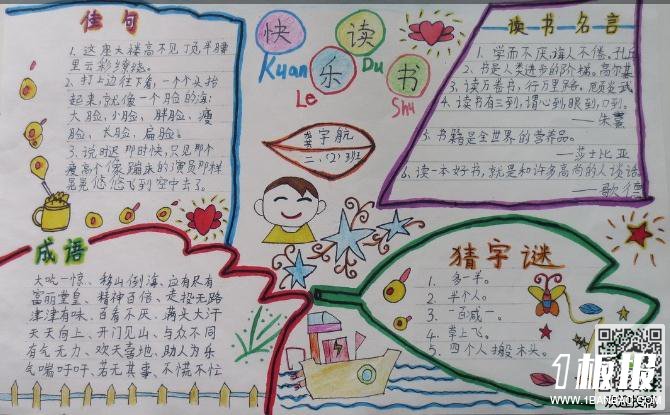 佳句
1. 这座大楼高不见顶,半腰
里云彩缭绕。
2. 打上边往下看,一个个头抬
起来,就像一个脸的海:
大脸、小脸、胖脸、瘦
脸、长脸、扁脸。
3. 说时迟那时快,只见那个
瘦高个像蹦床的演员那样
晃晃悠悠飞到空中去了。
快
乐
读
书
Kuan
Le
Du
Shu
宇航
二、(2)班
读书名言
1. 学而不厌,诲人不倦。孔丘
2. 书是人类进步的阶梯。高尔基
3. 读万卷书,行万里路。顾炎武
4. 读书有三到,谓心到,眼到,口到。
——朱熹
5. 书籍是全世界的营养品。
——莎士比亚
6. 读一本好书,就是和许多高尚的人谈话
——歌德
成语
大吃一惊、移山倒海、应有尽有
富丽堂皇、精神百倍、走投无路
津津有味、百看不厌、满头大汗
天天向上、开门见山、与众不同
有气无力、欢天喜地、助人为乐
气喘吁吁、若无其事、不慌不忙
猜字谜
1. 多一半。
2. 半个人。
3. 一百减一。
4. 掌上飞。
5. 四个人搬木头。
1板报
WWW.1BANBAO.COM